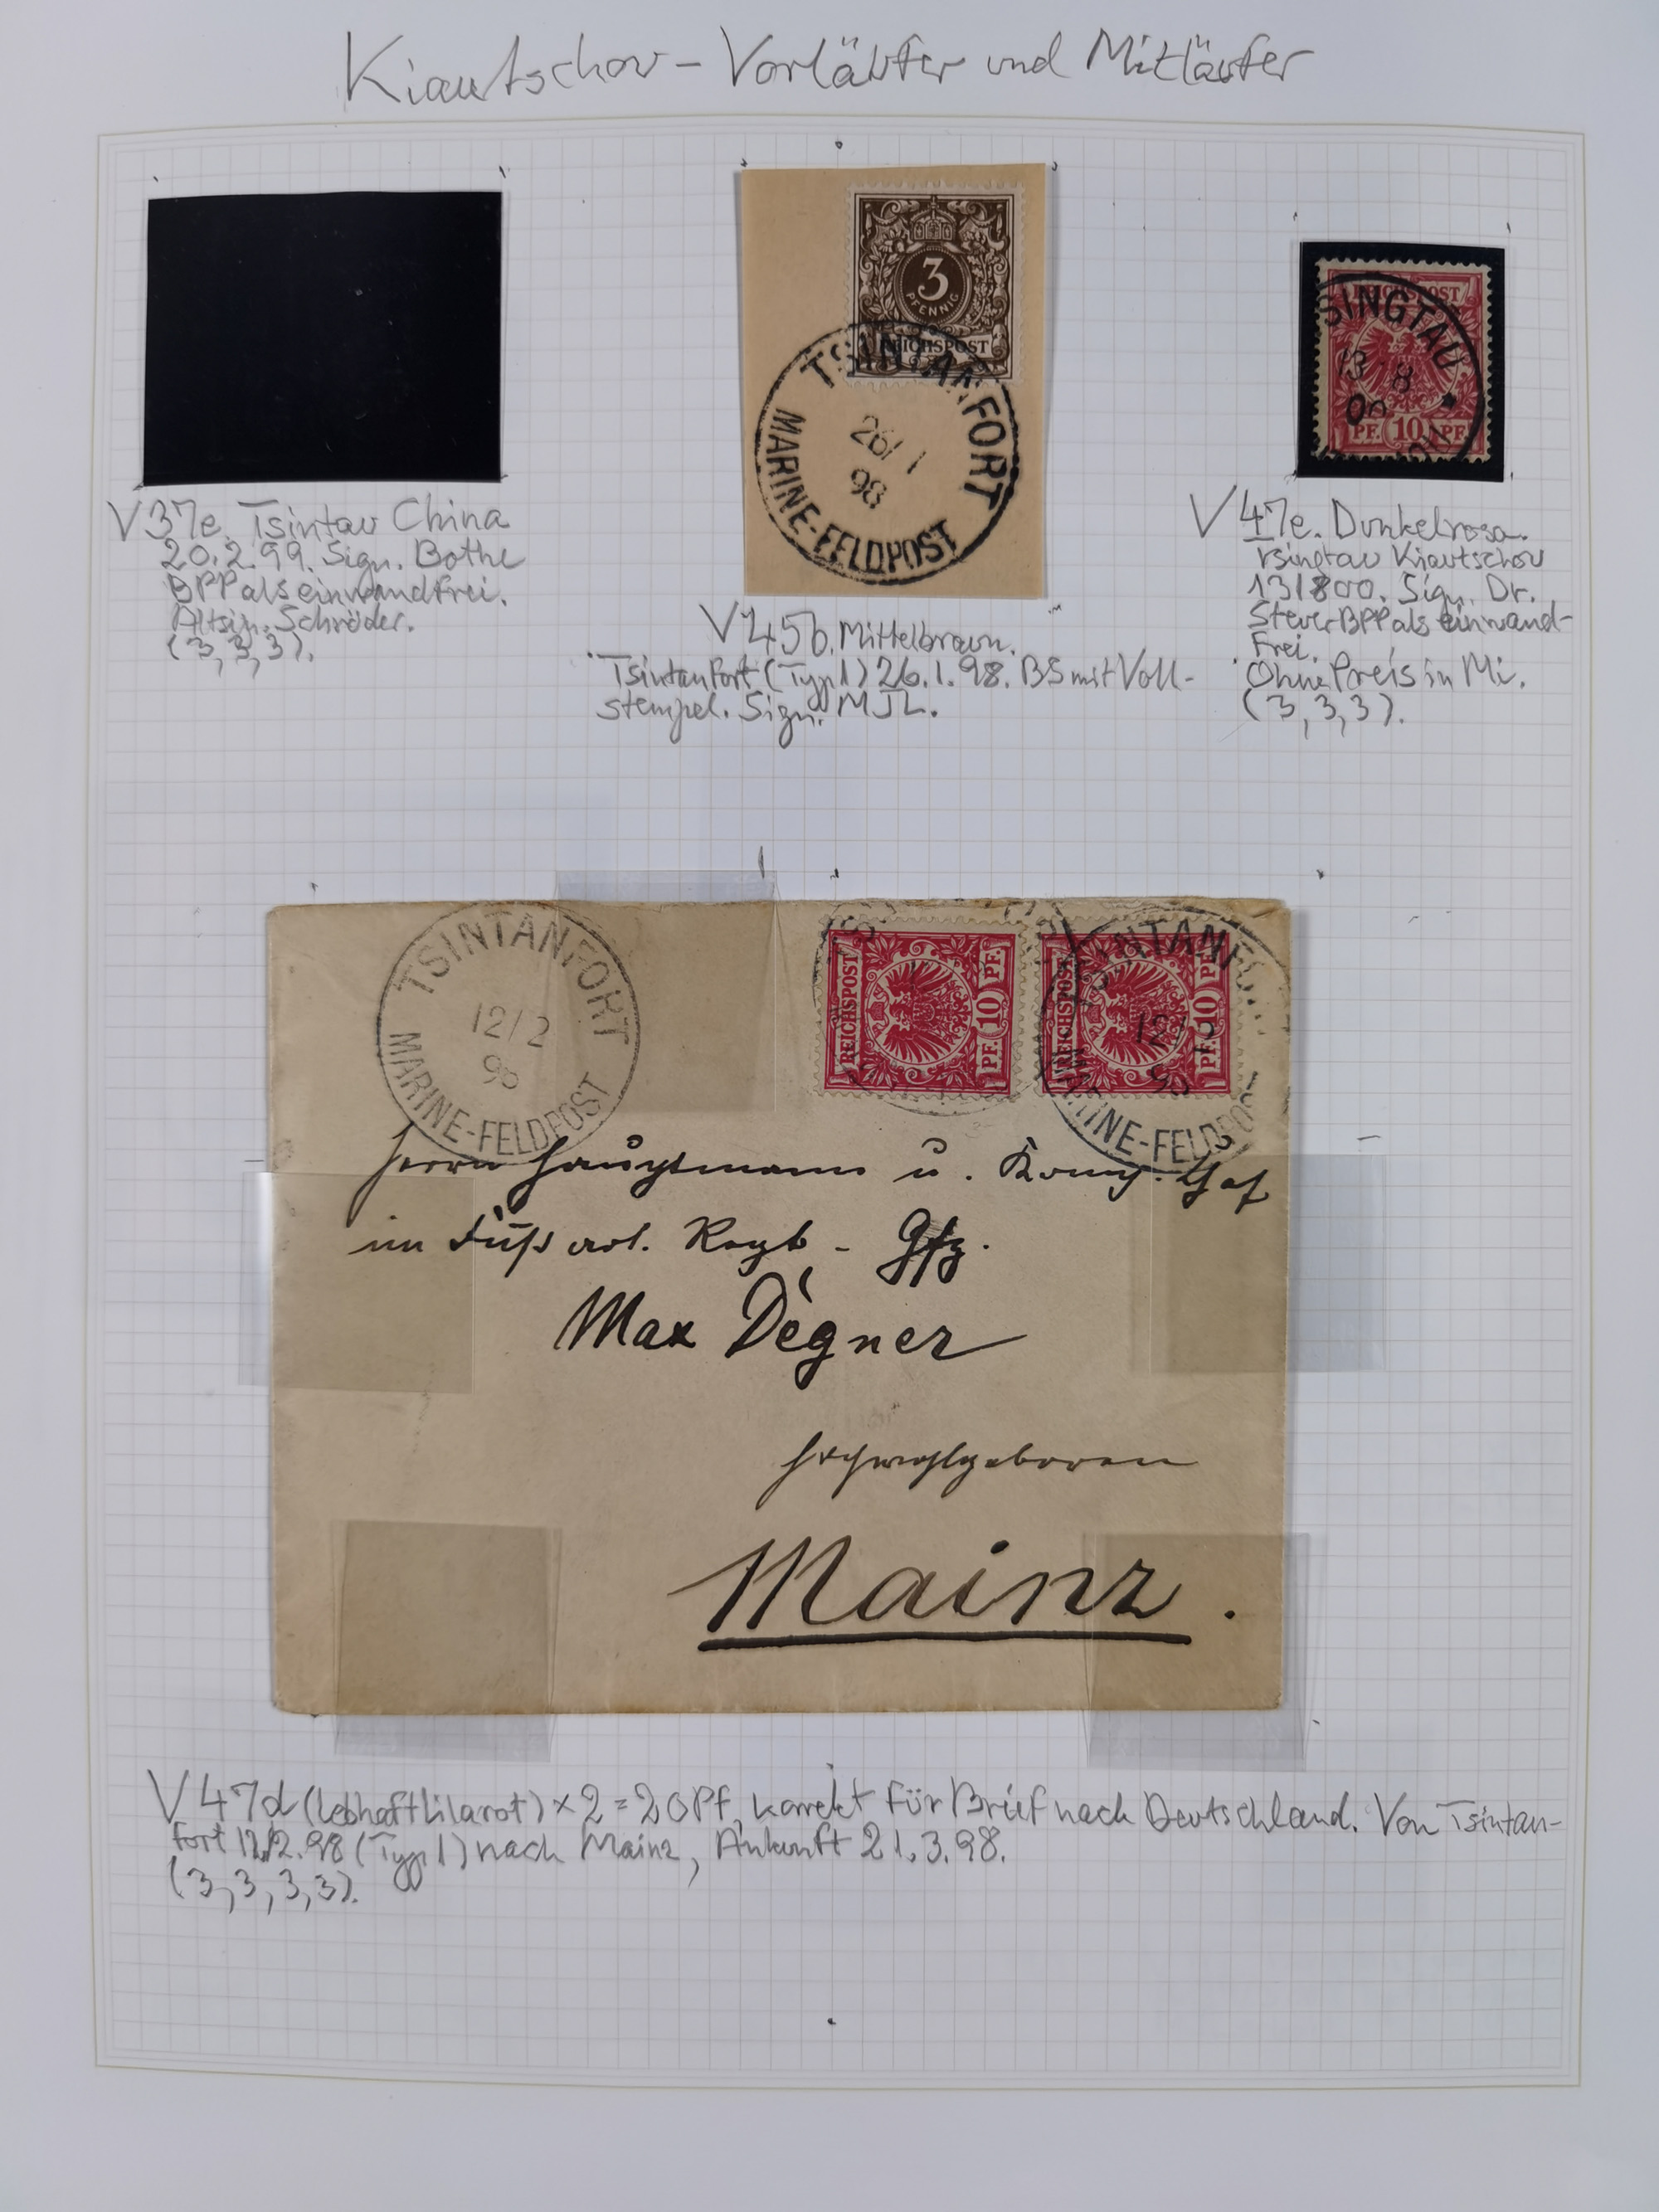 Kiautschou - Vorläufer und Mitläufer
3
PFENNIG
REICHSPOST
TSINTANFORT
26/1
98
MARINE-FELDPOST
REICHSPOST
TSINGTAU
13 8
00
PF. 10 PF.
V37e. Tsintau China
20.2.99. Sign. Bothe
BPP als einwandfrei.
Altsign. Schröder.
(3,3,3).
V45b. Mittelbraun.
Tsintanfort (Typ 1) 26.1.98. BS mit Voll-
stempel. Sign. MJL.
V47e. Dunkelrosa.
Tsingtau Kiautschou
13/8 00. Sign. Dr.
Steuer BPP als einwand-
frei.
Ohne Preis in Mi.
(3,3,3).
TSINTANFORT
12/2
98
MARINE-FELDPOST
REICHSPOST
PF. 10 PF.
REICHSPOST
PF. 10 PF.
TSINTANFO
12/2
98
MARINE-FELDPOST
Herrn Hauptmann u. Komp. Chef
im Fuß art. Regt -
Max Degner
Hochwohlgeboren
Mainz.
V47d (lebhaftlilarot) x 2 = 20 Pf, korrekt für Brief nach Deutschland. Von Tsintan-
fort 12.2.98 (Typ 1) nach Mainz, Ankunft 21.3.98.
(3,3,3,3).